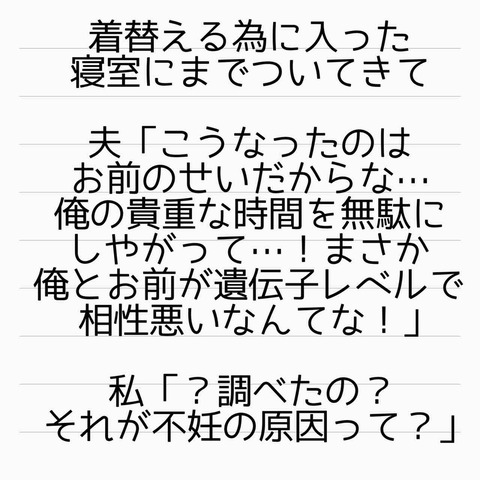 着替える為に入った
寝室にまでついてきて
夫「こうなったのは
お前のせいだからな…
俺の貴重な時間を無駄に
しやがって…！まさか
俺とお前が遺伝子レベルで
相性悪いなんてな！」
私「？調べたの？
それが不妊の原因って？」